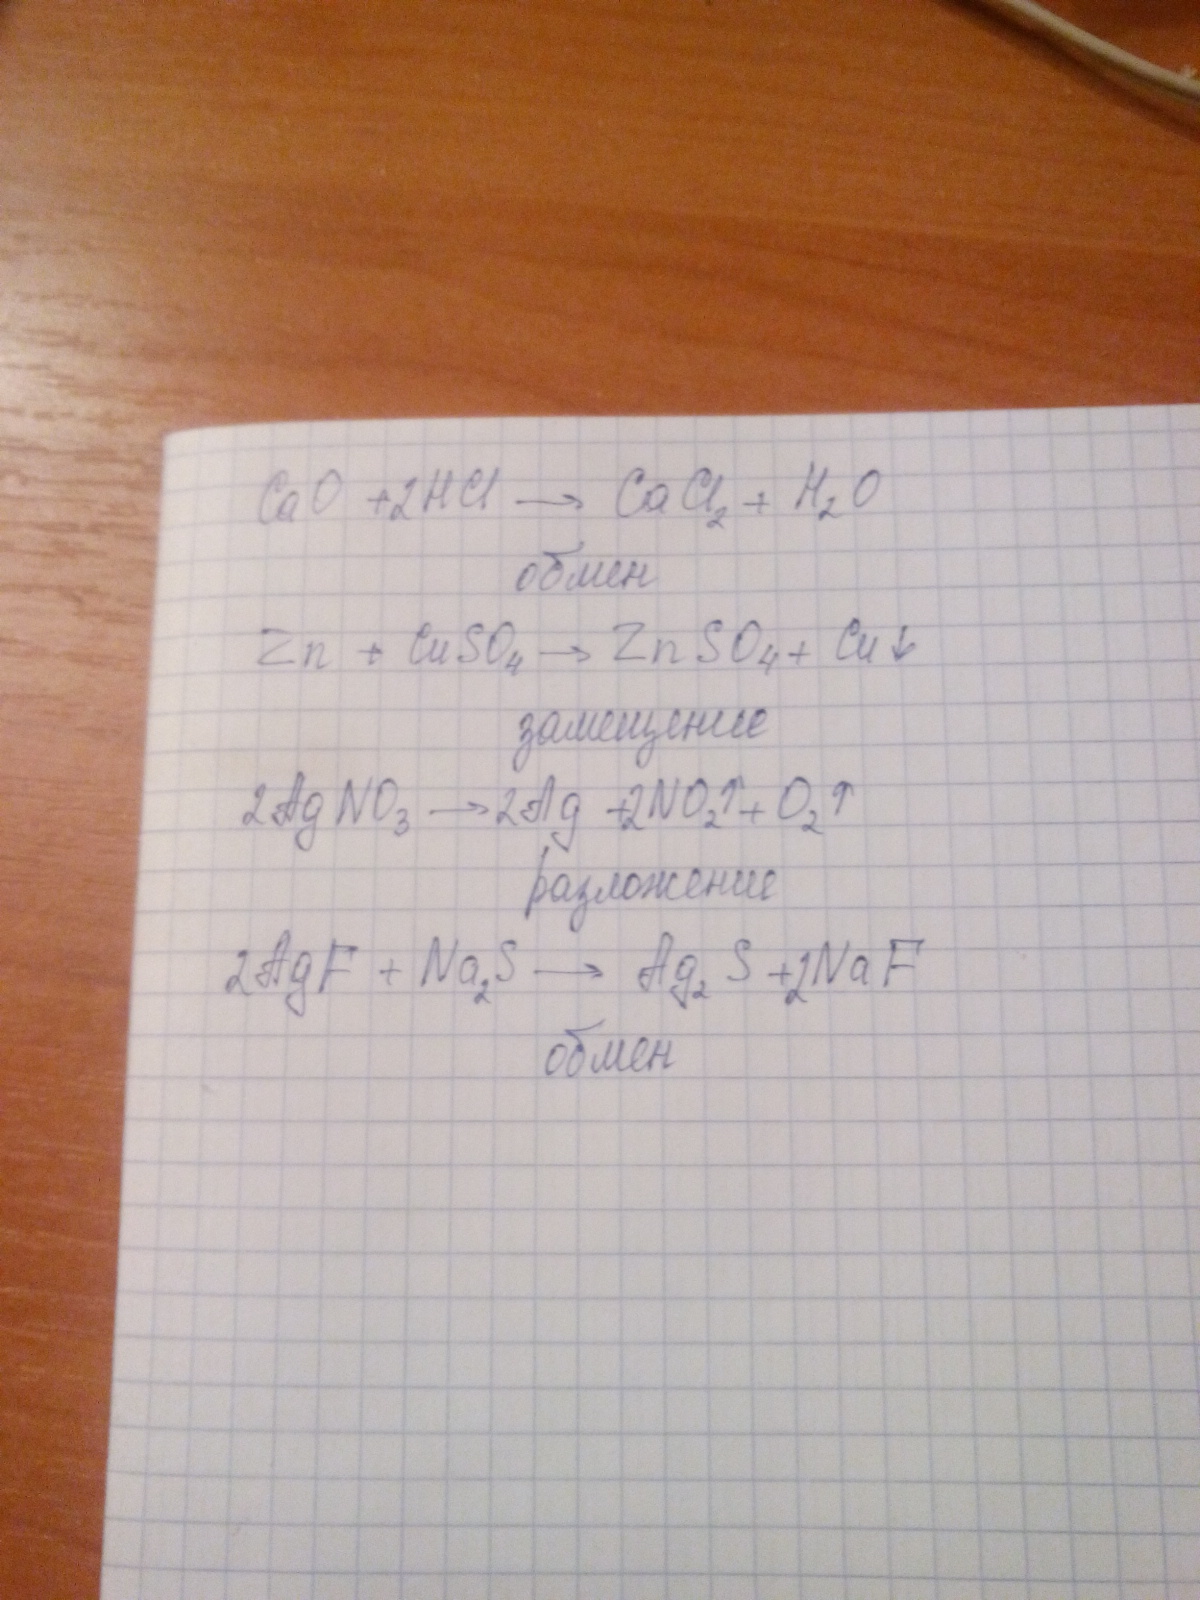 CaO + 2HCl → CaCl₂ + H₂O
обмен
Zn + CuSO₄ → ZnSO₄ + Cu↓
замещение
2AgNO₃ → 2Ag + 2NO₂↑ + O₂↑
разложение
2AgF + Na₂S → Ag₂S + 2NaF
обмен